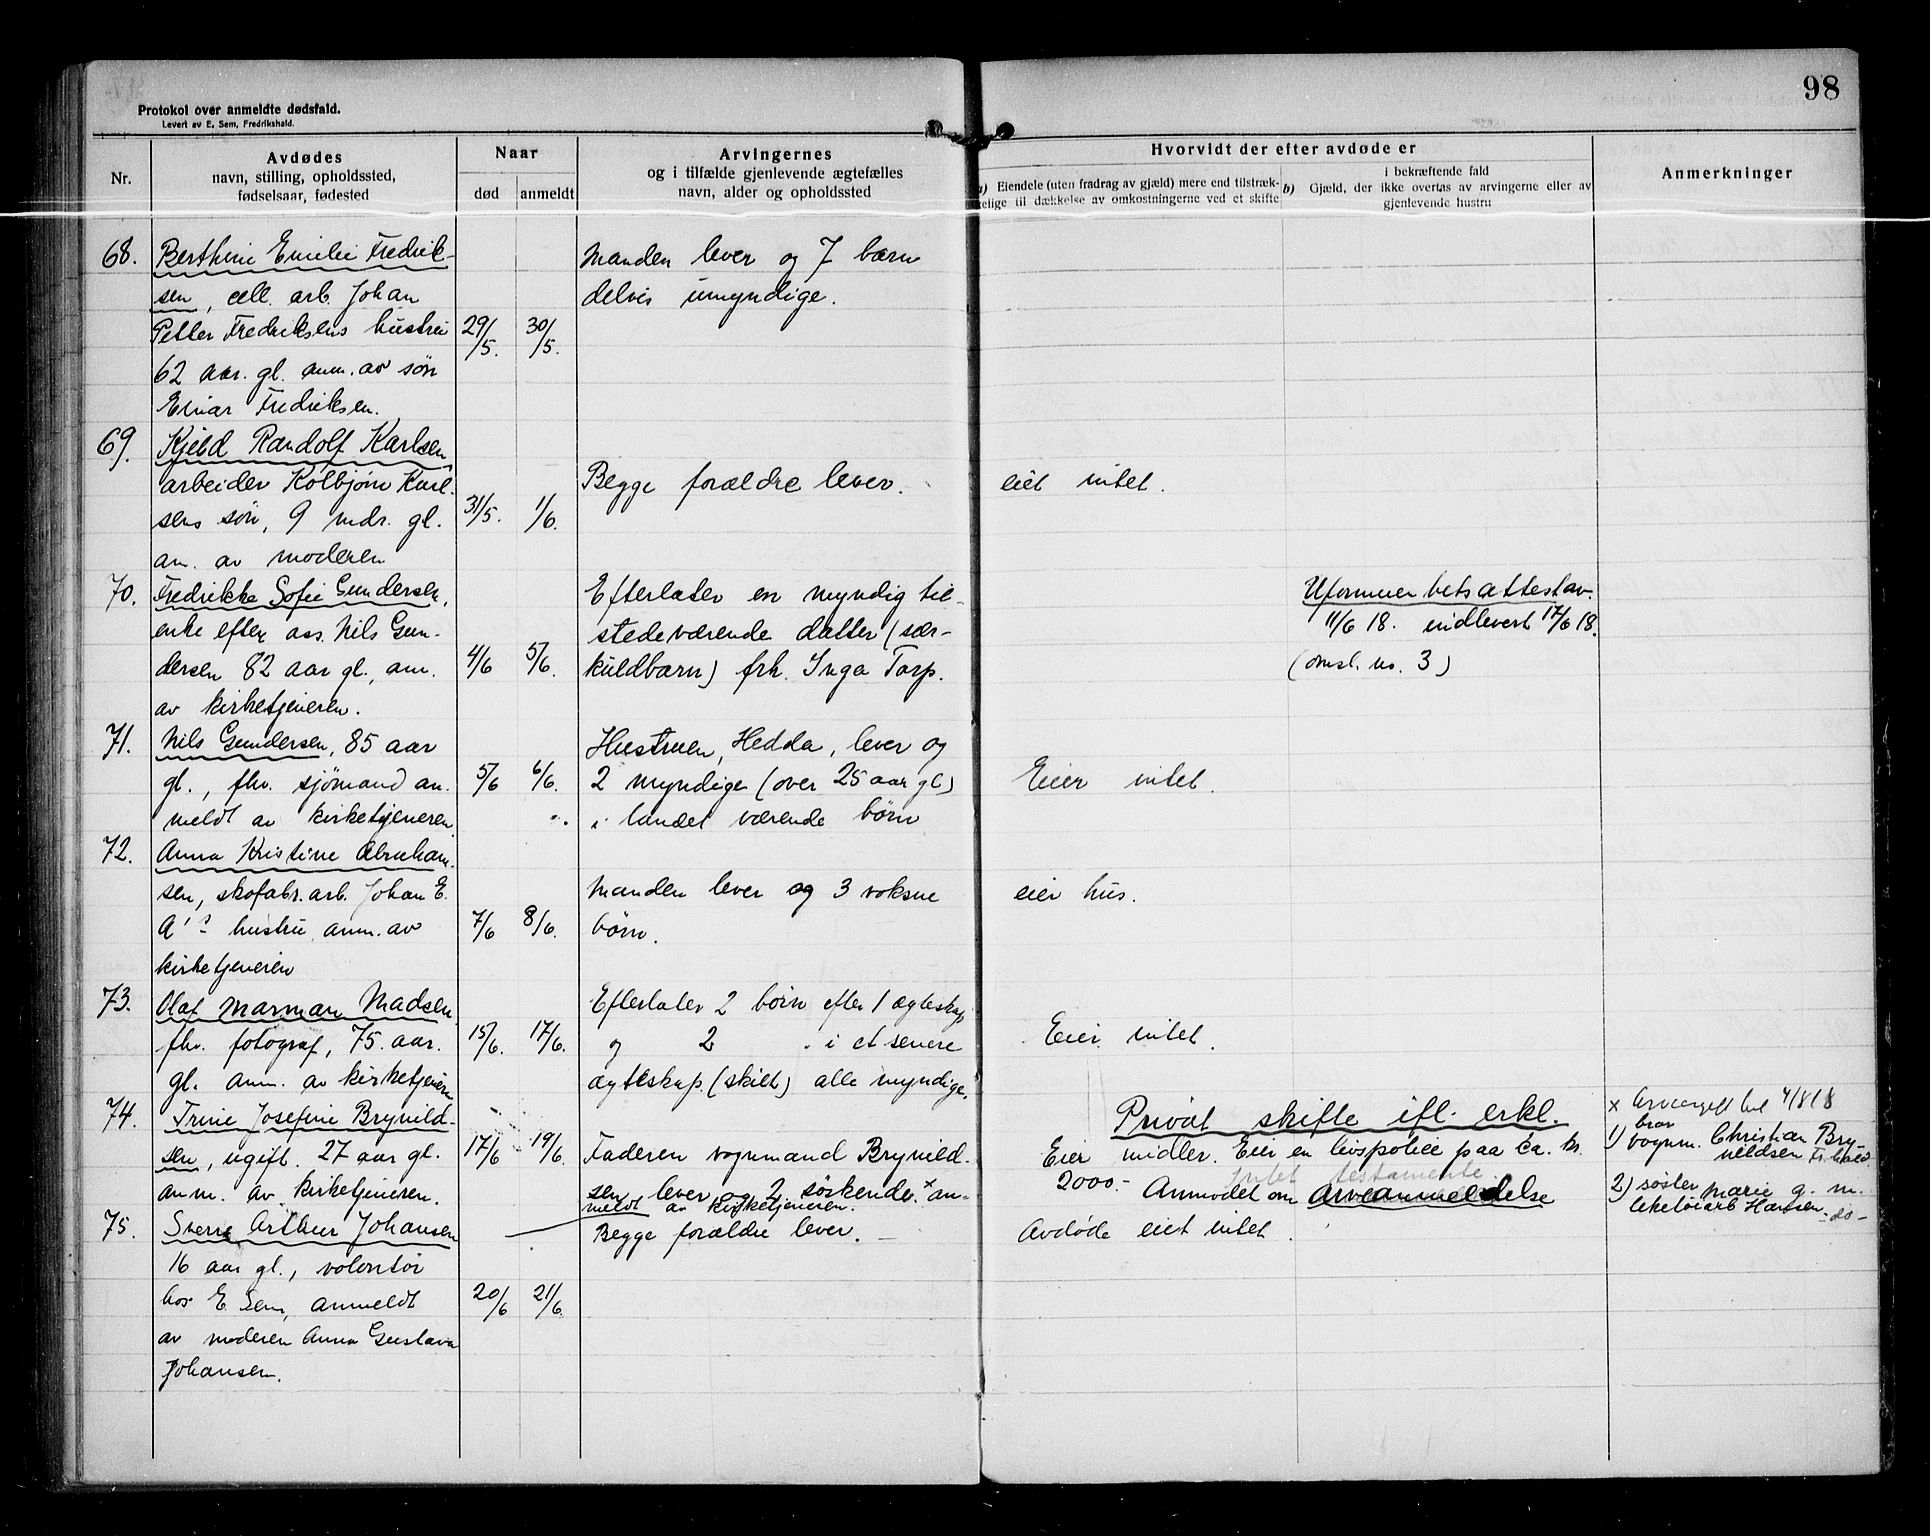 98
Protokol over anmeldte dødsfald.
Levert av E. Sem, Fredrikshald.
Nr.
Avdødes
navn, stilling, opholdssted,
fødselsaar, fødested
Naar
død
anmeldt
Arvingernes
og i tilfælde gjenlevende ægtefælles
navn, alder og opholdssted
Hvorvidt der efter avdøde er
a) Eiendele (uten fradrag av gjæld) mere end tilstræk-
kelige til dækkelse av omkostningerne ved et skifte
i bekræftende fald
b) Gjæld, der ikke overtas av arvingerne eller av
gjenlevende hustru
Anmerkninger
68.
Berthine Emilie Fredrik-
sen, cell. arb. Johan
Petter Fredriksens hustru
62 aar. gl. anm. av søn
Einar Fredriksen.
29/5.
30/5.
Manden lever og 7 børn
delvis umyndige.
69.
Kjeld Randolf Karlsen,
arbeider Kolbjørn Karl-
sens søn, 9 mdr. gl.
an. av moderen
31/5.
1/6.
Begge forældre lever.
eiet intet.
70.
Fredrikke Sofie Gundersen,
enke efter ass. Nils Gun-
dersen 82 aar gl., anm.
av kirketjeneren.
4/6
5/6.
Efterlater en myndig til-
stedeværende datter (sær-
kuldbarn) frk. Inga Torp.
Uformuenhets attest av
11/6 18. indlevert 17/6 18.
(omsl. no. 3)
71.
Nils Gundersen, 85 aar
gl., fhv. sjømand an-
meldt av kirketjeneren.
5/6
6/6.
Hustruen, Hedda, lever og
2 myndige (over 25 aar gl)
i landet værende børn
Eier intet.
72.
Anna Kristine Abraham-
sen, skofabr. arb. Johan E.
A's hustru, anm. av
kirketjeneren
7/6
8/6.
Manden lever og 3 voksne
børn.
eier hus.
73.
Olaf Marman Madsen.
fhv. fotograf, 75. aar.
gl. anm. av kirketjeneren
15/6.
17/6.
Efterlater 2 børn efter 1 ægteskap
og 2 " i et senere
ægteskap (skilt) alle myndige.
Eier intet.
74.
Trine Josefine Brynild-
sen, ugift. 27 aar gl.
anm. av kirketjeneren.
17/6
19/6.
Faderen vognmand Brynild-
sen lever og 2 søskende. x an-
meldt av kirketjeneren.
Privat skifte ifl. erkl.
Eier midler. Eier en livspolice paa ca. kr.
Intet testamente
2000.- Anmodet om arveanmeldelse
x Arveavgift bet 4/8 18
bror
1) vognm. Christian Bry-
nildsen Fr.hald
2) søster Marie g. m.
leketøiarb Hansen -do-
75.
Sverre Arthur Johansen
16 aar gl., volontør
hos E. Sem, anmeldt
av moderen Anna Gustava
Johansen.
20/6
21/6.
Begge forældre lever.
Avdøde eiet intet.